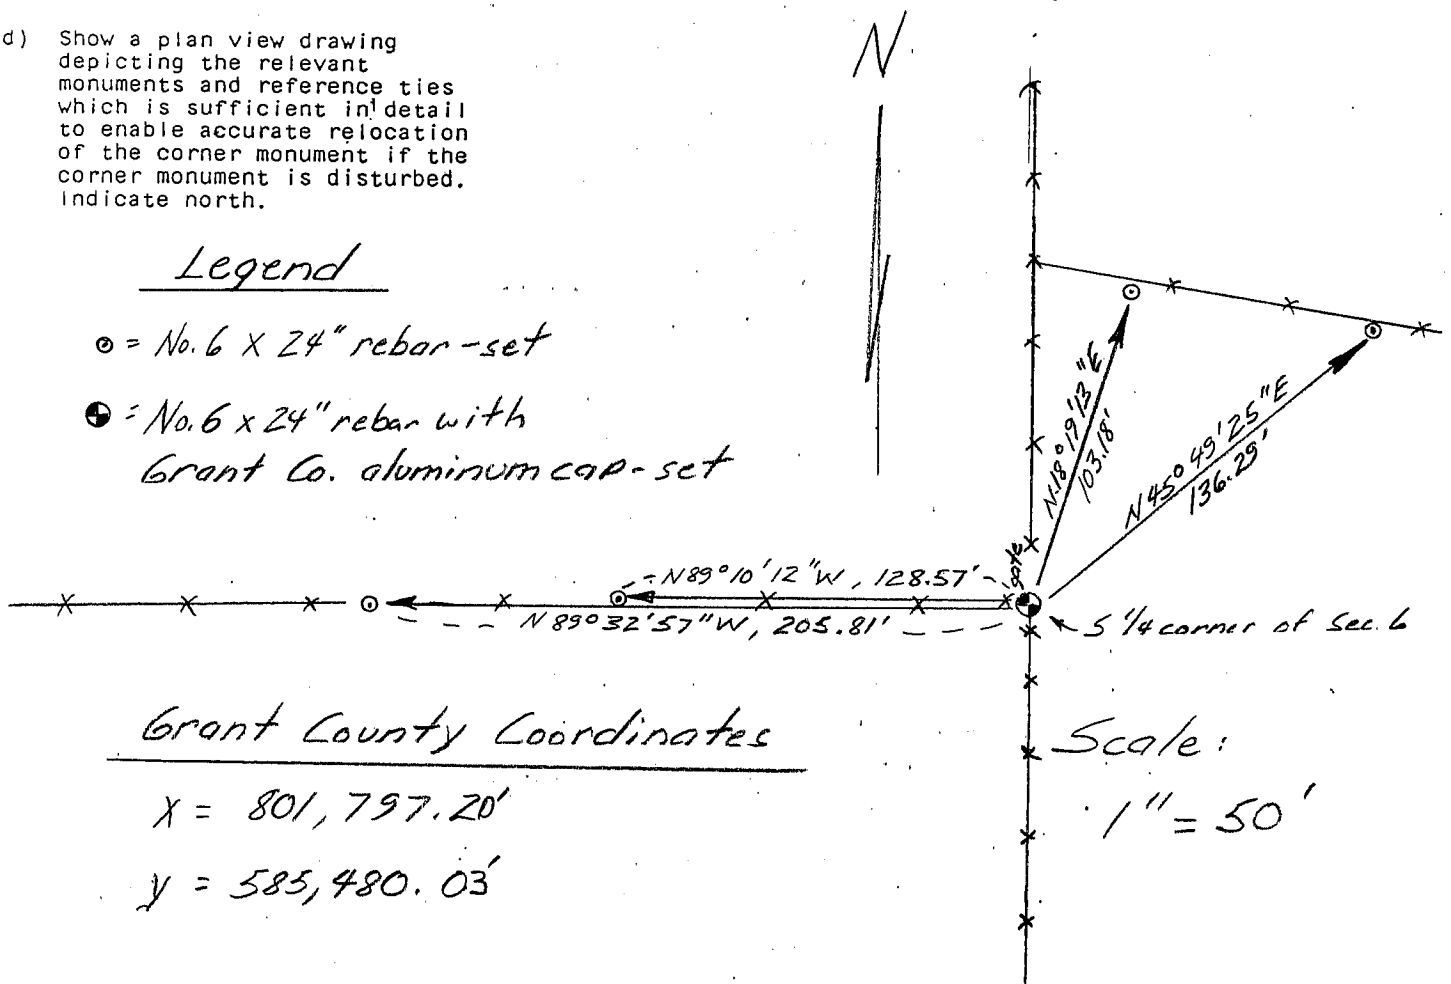 d) Show a plan view drawing
depicting the relevant
monuments and reference ties
which is sufficient in detail
to enable accurate relocation
of the corner monument if the
corner monument is disturbed.
Indicate north.
N
Legend
= No. 6 X 24" rebar-set
= No. 6 x 24" rebar with
Grant Co. aluminum cap-set
N 18° 19' 13" E
103.18'
N 45° 49' 25" E
136.29'
gate
N 89° 10' 12" W, 128.57'
N 89° 32' 57" W, 205.81'
S 1/4 corner of Sec. 6
Grant County Coordinates
X = 801,797.20'
y = 585,480.03'
Scale:
1" = 50'